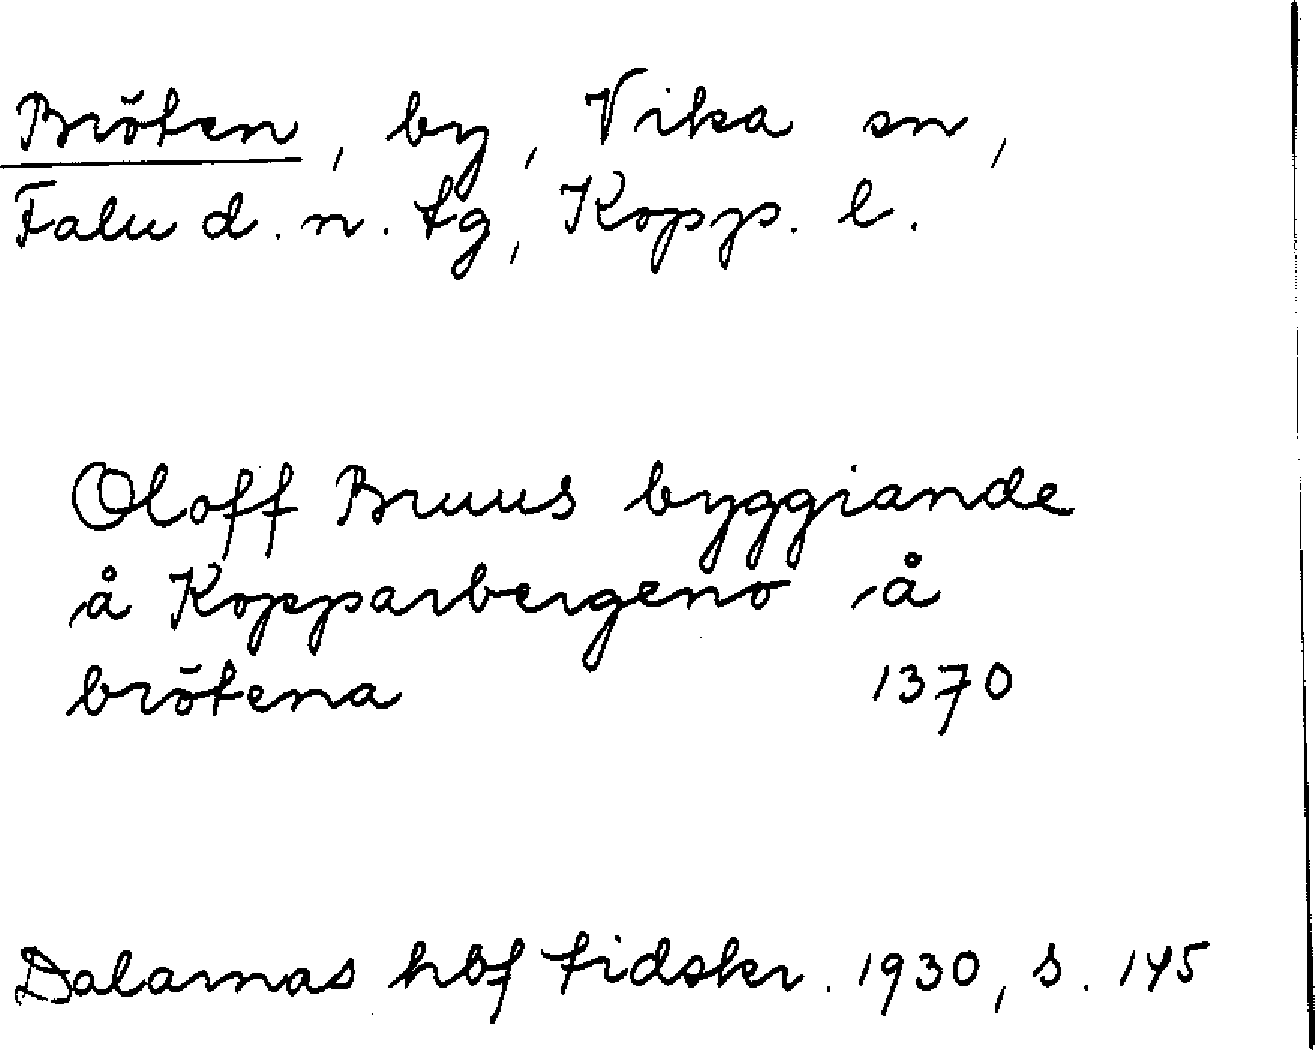 Bröten, by, Vika sn,
Falu d. n. tg, Kopp. l.
Oloff Bruus byggiande
å Kopparbergeno å
brötena 1370
Dalarnas hbf tidskr. 1930, s. 145